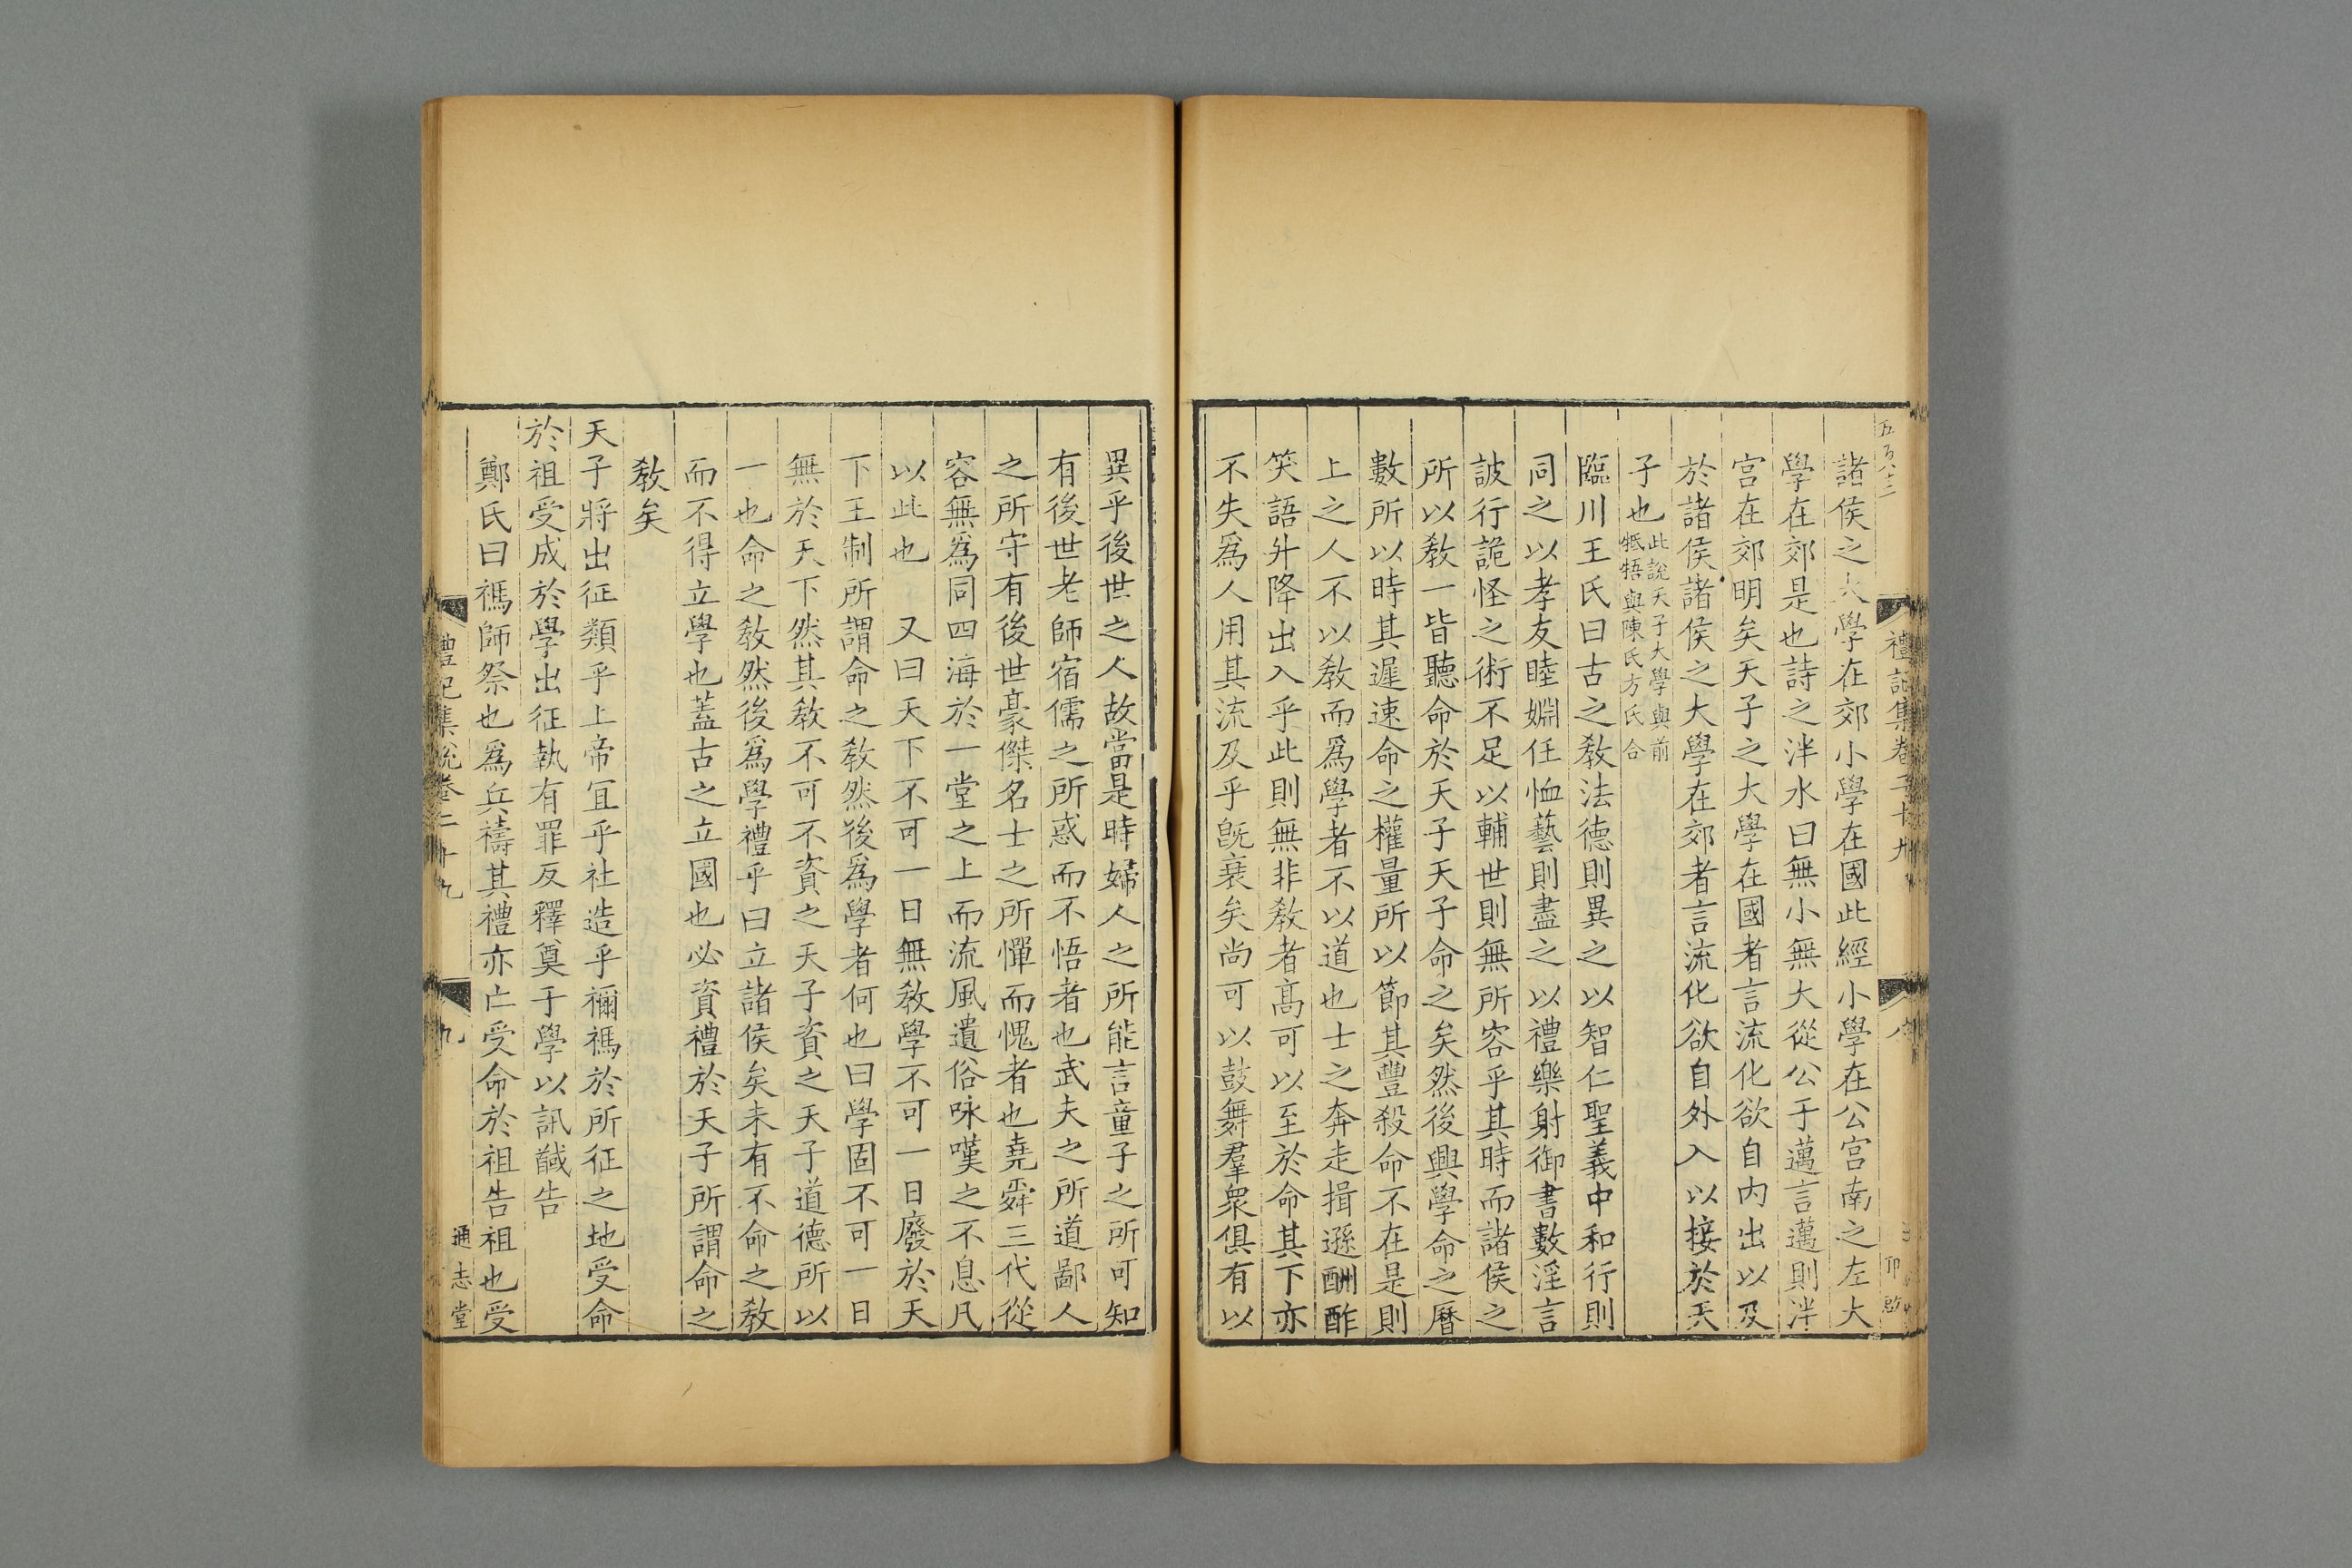 五百八十二
諸侯之大學在郊小學在國此經小學在公宮南之左大
學在郊是也詩之泮水曰無小無大從公于邁言邁則泮
宮在郊明矣天子之大學在國者言流化欲自内出以及
於諸侯諸侯之大學在郊者言流化欲自外入以接於天
子也此說天子大學與前
牴牾與陳氏方氏合
臨川王氏曰古之敎法德則異之以智仁聖義中和行則
同之以孝友睦婣任恤藝則盡之以禮樂射御書數淫言
詖行詭怪之術不足以輔世則無所容乎其時而諸侯之
所以敎一皆聽命於天子天子命之矣然後興學命之曆
數所以時其遲速命之權量所以節其豐殺命不在是則
上之人不以敎而爲學者不以道也士之奔走揖遜酬酢
笑語升降出入乎此則無非敎者高可以至於命其下亦
不失爲人用其流及乎旣衰矣尚可以鼓舞羣衆俱有以
異乎後世之人故當是時婦人之所能言童子之所可知
有後世老師宿儒之所惑而不悟者也武夫之所道鄙人
之所守有後世豪傑名士之所憚而愧者也堯舜三代從
容無爲同四海於一堂之上而流風遺俗咏嘆之不息凡
以此也　又曰天下不可一日無敎學不可一日廢於天
下王制所謂命之敎然後爲學者何也曰學固不可一日
無於天下然其敎不可不資之天子資之天子道德所以
一也命之敎然後爲學禮乎曰立諸侯矣未有不命之敎
而不得立學也蓋古之立國也必資禮於天子所謂命之
敎矣
天子將出征類乎上帝宜乎社造乎禰禡於所征之地受命
於祖受成於學出征執有罪反釋奠于學以訊馘告
鄭氏曰禡師祭也爲兵禱其禮亦亡受命於祖告祖也受
禮記集說卷二十九
九
通志堂